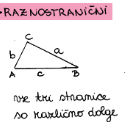 • RAZNOSTRANIČNI
C
b a
A c B
vse tri stranice
so različno dolge